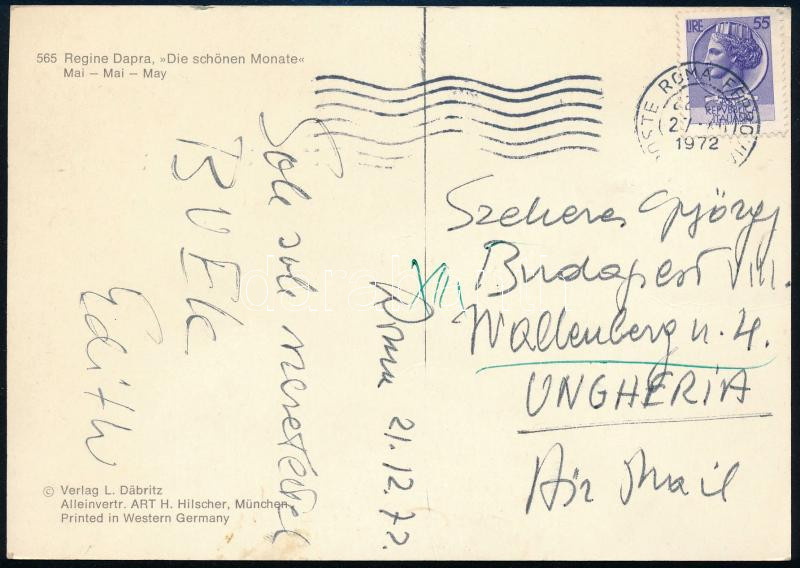 565 Regine Dapra, »Die schönen Monate«
Mai – Mai – May
Sok sok szeretettel
BUÉK.
Edith
Róma 21.12.72.
© Verlag L. Däbritz
Alleinvertr. ART H. Hilscher, München
Printed in Western Germany
LIRE 55
REPUBBLICA
ITALIANA
POSTE ROMA FERROVIA
1972
Szekeres György
Budapest VIII.
XIII,
Wallenberg u. 4.
UNGHERIA
Air Mail